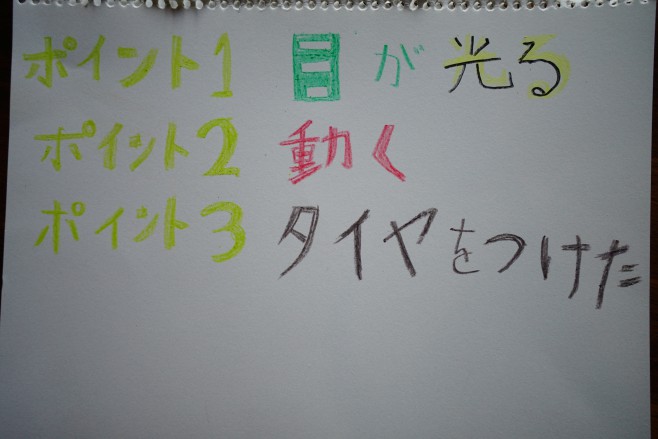 ポイント1 目が光る
ポイント2 動く
ポイント3 タイヤをつけた